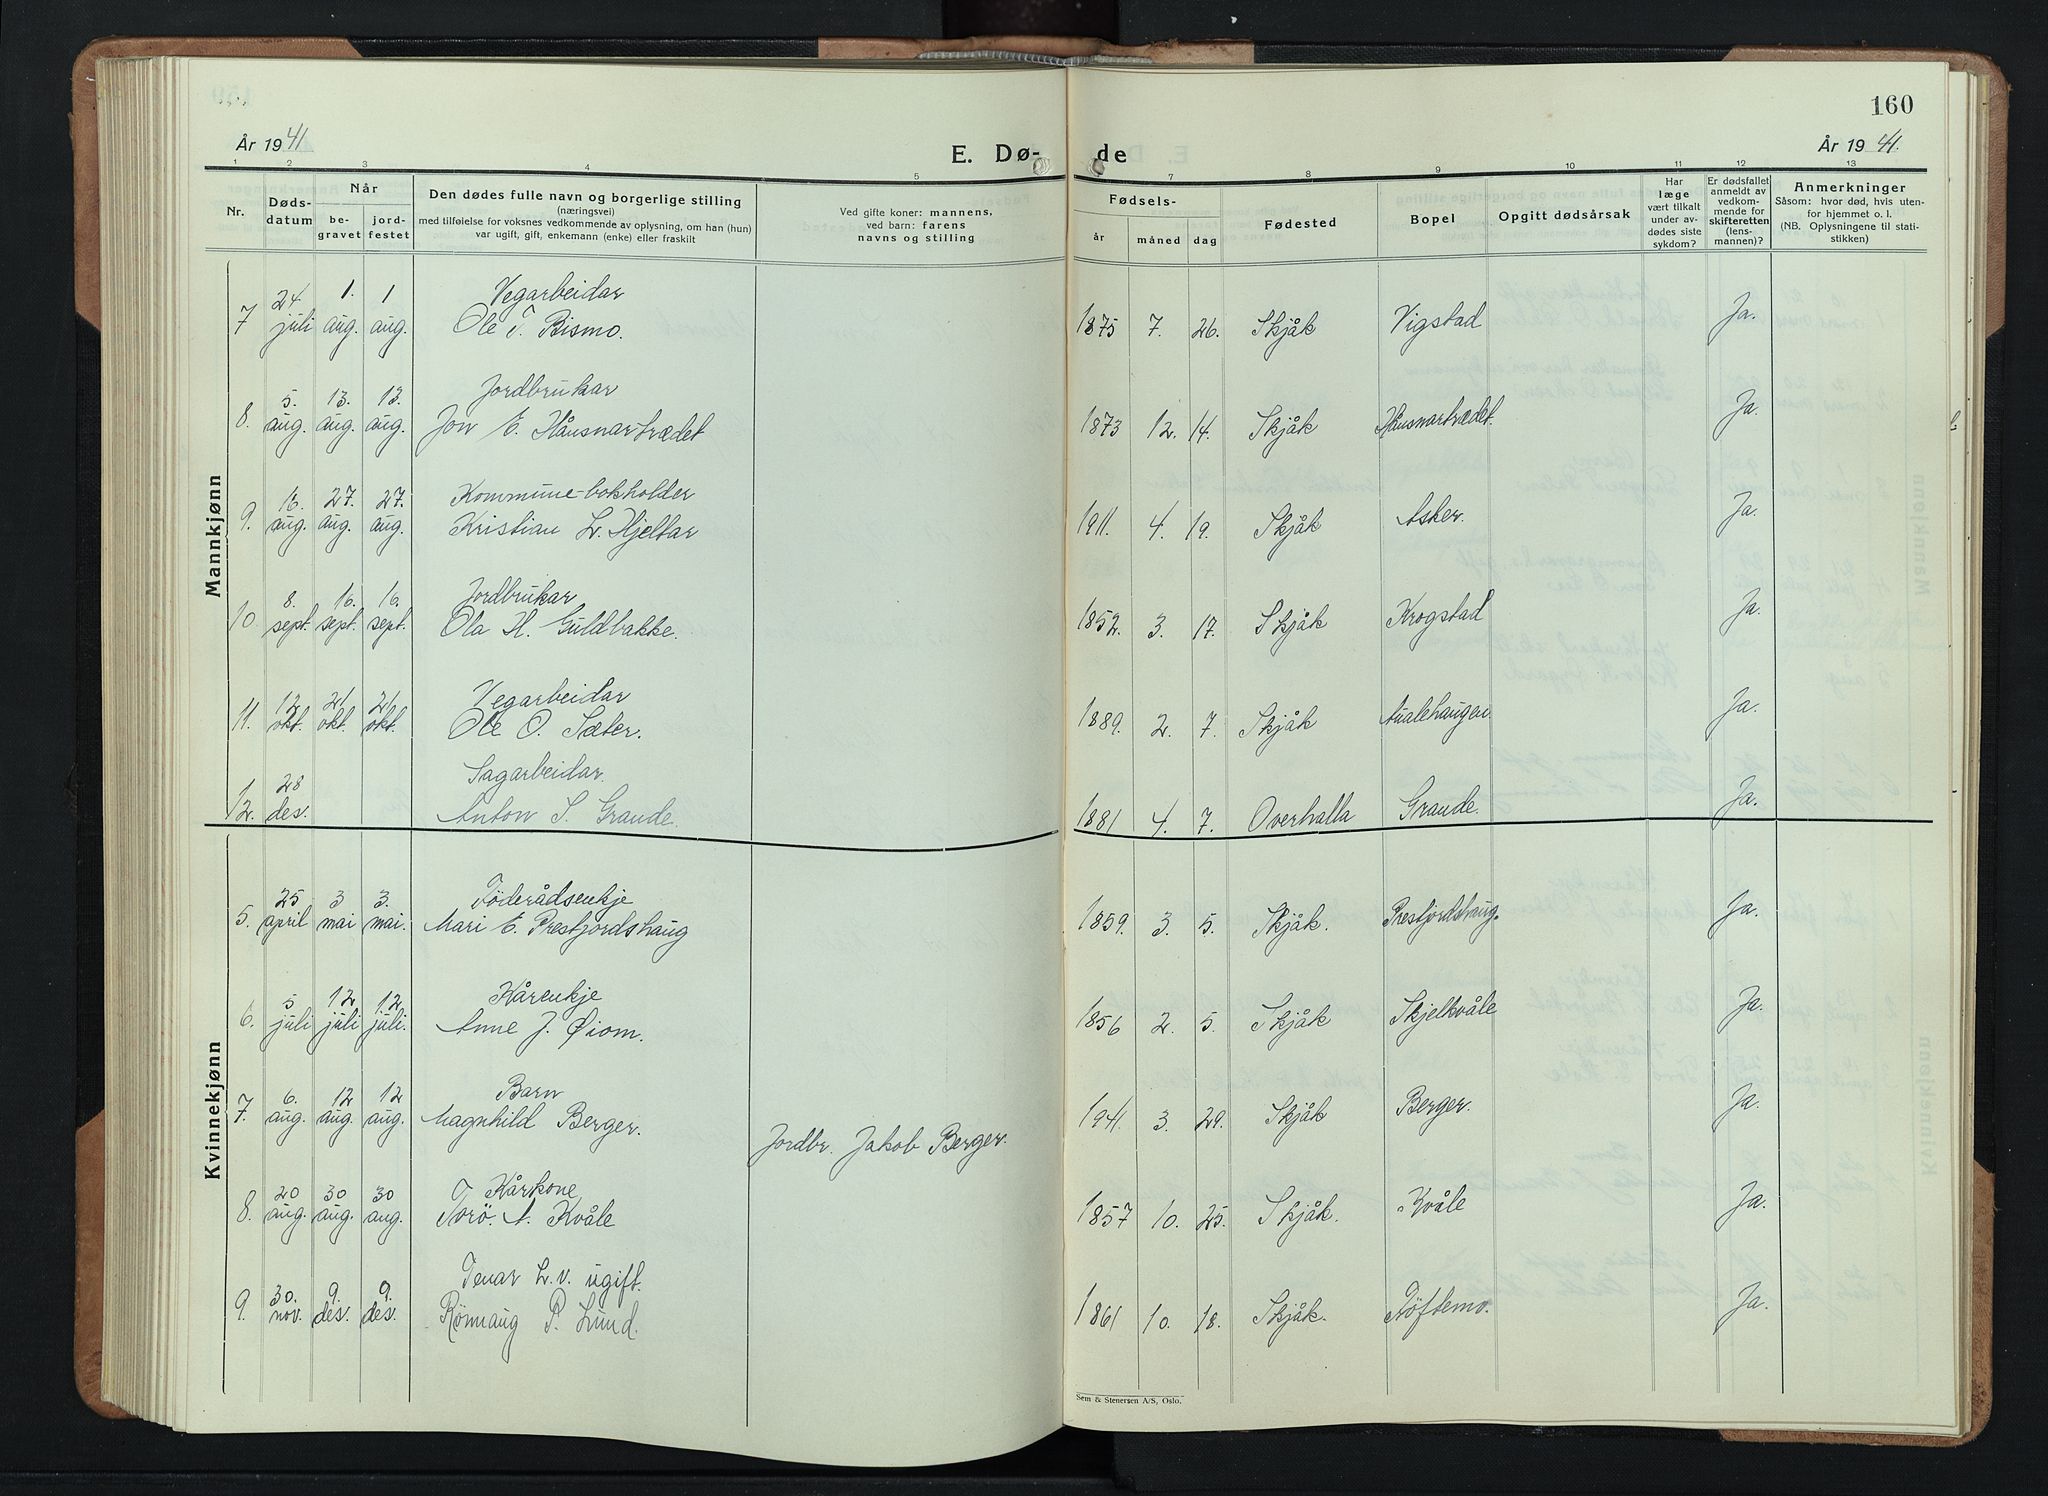 160
År 1941
År 1941.
E. Dø-
de
1 2 3 4 5
7 8 9 10 11 12 13
Nr.
Døds-
datum
Når
be-
gravet
jord-
festet
Den dødes fulle navn og borgerlige stilling
(næringsvei)
med tilføielse for voksnes vedkommende av oplysning, om han (hun)
var ugift, gift, enkemann (enke) eller fraskilt
Ved gifte koner: mannens,
ved barn: farens
navns og stilling
Fødsels-
år måned dag
Fødested
Bopel
Opgitt dødsårsak
Har
læge
vært tilkalt
under av-
dødes siste
sykdom?
Er dødsfallet
anmeldt av
vedkom-
mende for
skifteretten
(lens-
mannen)?
Anmerkninger
Såsom: hvor død, hvis uten-
for hjemmet o. l.
(NB. Oplysningene til stati-
stikken)
Mannkjønn
24 1. 1 Vegarbeidar
7 juli aug. aug. Ole T. Bismo. 1875 7. 26. Skjåk Vigstad Ja.
5. 13. 13. Jordbrukar
8. aug. aug. aug. Jon E. Håusnartrædet 1873 12. 14. Skjåk Håusnartrædet. Ja.
16. 27. 27. Kommune-bokholder
9. aug. aug. aug. Kristian L. Hjeltar 1911. 4. 19. Skjåk Asker. Ja.
8. 16. 16. Jordbrukar
10. sept. sept. sept. Ola H. Guldbakke. 1852. 3. 17. Skjåk Krogstad Ja.
12. 21. 21 Vegarbeidar
11. okt. okt. okt. Ole O. Sæter. 1889. 2. 7. Skjåk Aualehaugen Ja.
28 Sagarbeidar.
12. des. Anton S. Grande. 1881 4. 7. Overhalla Grande. Ja.
Kvinnekjønn
25 3 3. Föderådsenkje
5. april mai mai. Mari E. Prestjordshaug 1859. 3. 5. Skjåk. Prestjordshaug. Ja.
5 12 12 Kårenkje
6. juli juli juli. Anne J. Øiom. 1856 2. 5. Skjåk Skjelkvåle Ja.
6. 12 12 Barn
7. aug. aug. aug. Magnhild Berger. Jordbr. Jakob Berger. 1941. 3. 29. Skjåk Berger. Ja.
20 30 30 Kårkone
8. aug. aug. aug. Torö. A. Kvåle 1857 10. 25. Skjåk. Kvåle Ja.
30. 9. 9. Tenar L.v. ugift.
9. nov. des. des. Rönnaug P. Lund. 1861 10. 18. Skjåk. Töftemo. Ja.
Sem & Stenersen A/S, Oslo.